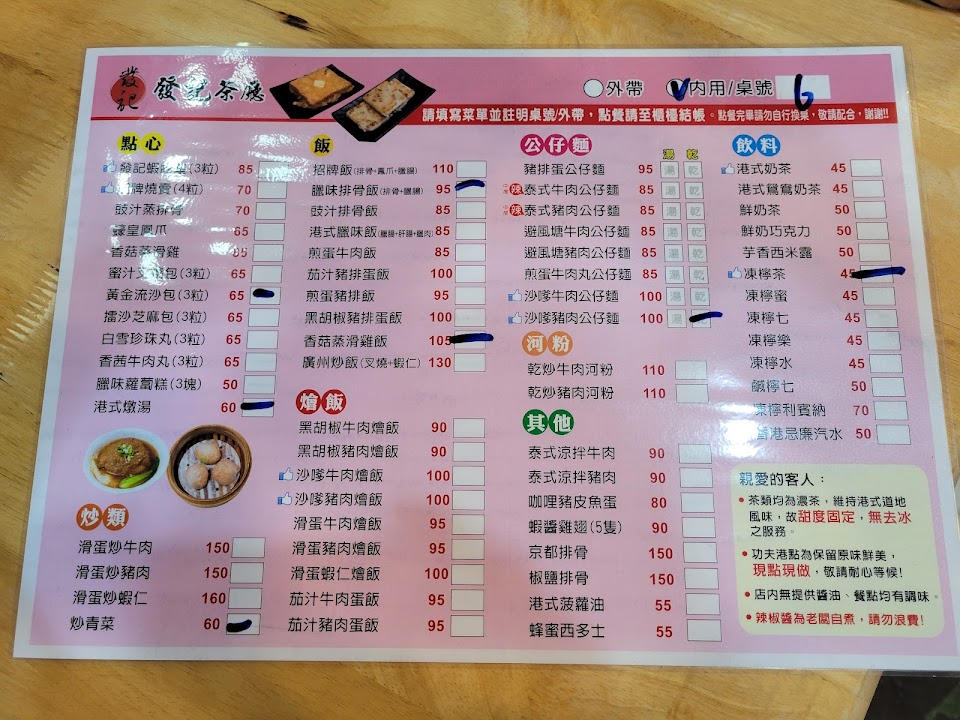 發記
發記茶廳
外帶 V內用/桌號 6
請填寫菜單並註明桌號/外帶，點餐請至櫃檯結帳。點餐完畢請勿自行換桌，敬請配合，謝謝!!
點心
(3粒) 85
燒賣(4粒) 70
豉汁蒸排骨 70
皇鳳爪 65
香菇蒸滑雞
蜜汁叉燒包(3粒) 65
黃金流沙包(3粒) 65
擂沙芝麻包(3粒) 65
白雪珍珠丸(3粒) 65
香茜牛肉丸(3粒) 65
臘味蘿蔔糕(3塊) 50
港式燉湯 60
炒類
滑蛋炒牛肉 150
滑蛋炒豬肉 150
滑蛋炒蝦仁 160
炒青菜 60
飯
招牌飯(排骨+鳳爪+臘腸) 110
臘味排骨飯(排骨+臘腸) 95
豉汁排骨飯 85
港式臘味飯(臘腸+肝腸+臘肉) 85
煎蛋牛肉飯 85
茄汁豬排蛋飯 100
煎蛋豬排飯 95
黑胡椒豬排蛋飯 100
香菇蒸滑雞飯 105
廣州炒飯(叉燒+蝦仁) 130
燴飯
黑胡椒牛肉燴飯 90
黑胡椒豬肉燴飯 90
沙嗲牛肉燴飯 100
沙嗲豬肉燴飯 100
滑蛋牛肉燴飯 95
滑蛋豬肉燴飯 95
滑蛋蝦仁燴飯 100
茄汁牛肉蛋飯 95
茄汁豬肉蛋飯 95
公仔麵
湯 乾
豬排蛋公仔麵 95 湯 乾
辣 泰式牛肉公仔麵 85 湯 乾
辣 泰式豬肉公仔麵 85 湯 乾
避風塘牛肉公仔麵 85 湯 乾
避風塘豬肉公仔麵 85 湯 乾
煎蛋牛肉丸公仔麵 85 湯 乾
沙嗲牛肉公仔麵 100 湯 乾
沙嗲豬肉公仔麵 100 湯
河粉
乾炒牛肉河粉 110
乾炒豬肉河粉 110
其他
泰式涼拌牛肉 90
泰式涼拌豬肉 90
咖哩豬皮魚蛋 80
蝦醬雞翅(5隻) 90
京都排骨 150
椒鹽排骨 150
港式菠蘿油 55
蜂蜜西多士 55
飲料
港式奶茶 45
港式鴛鴦奶茶 45
鮮奶茶 50
鮮奶巧克力 50
芋香西米露 50
凍檸茶 45
凍檸蜜 45
凍檸七 45
凍檸樂 45
凍檸水 45
鹹檸七 50
凍檸利賓納 70
香港忌廉汽水 50
親愛的客人：
•茶類均為濃茶，維持港式道地
風味，故甜度固定，無去冰
之服務。
•功夫港點為保留原味鮮美，
現點現做，敬請耐心等候!
•店內無提供醬油、餐點均有調味。
•辣椒醬為老闆自煮，請勿浪費!